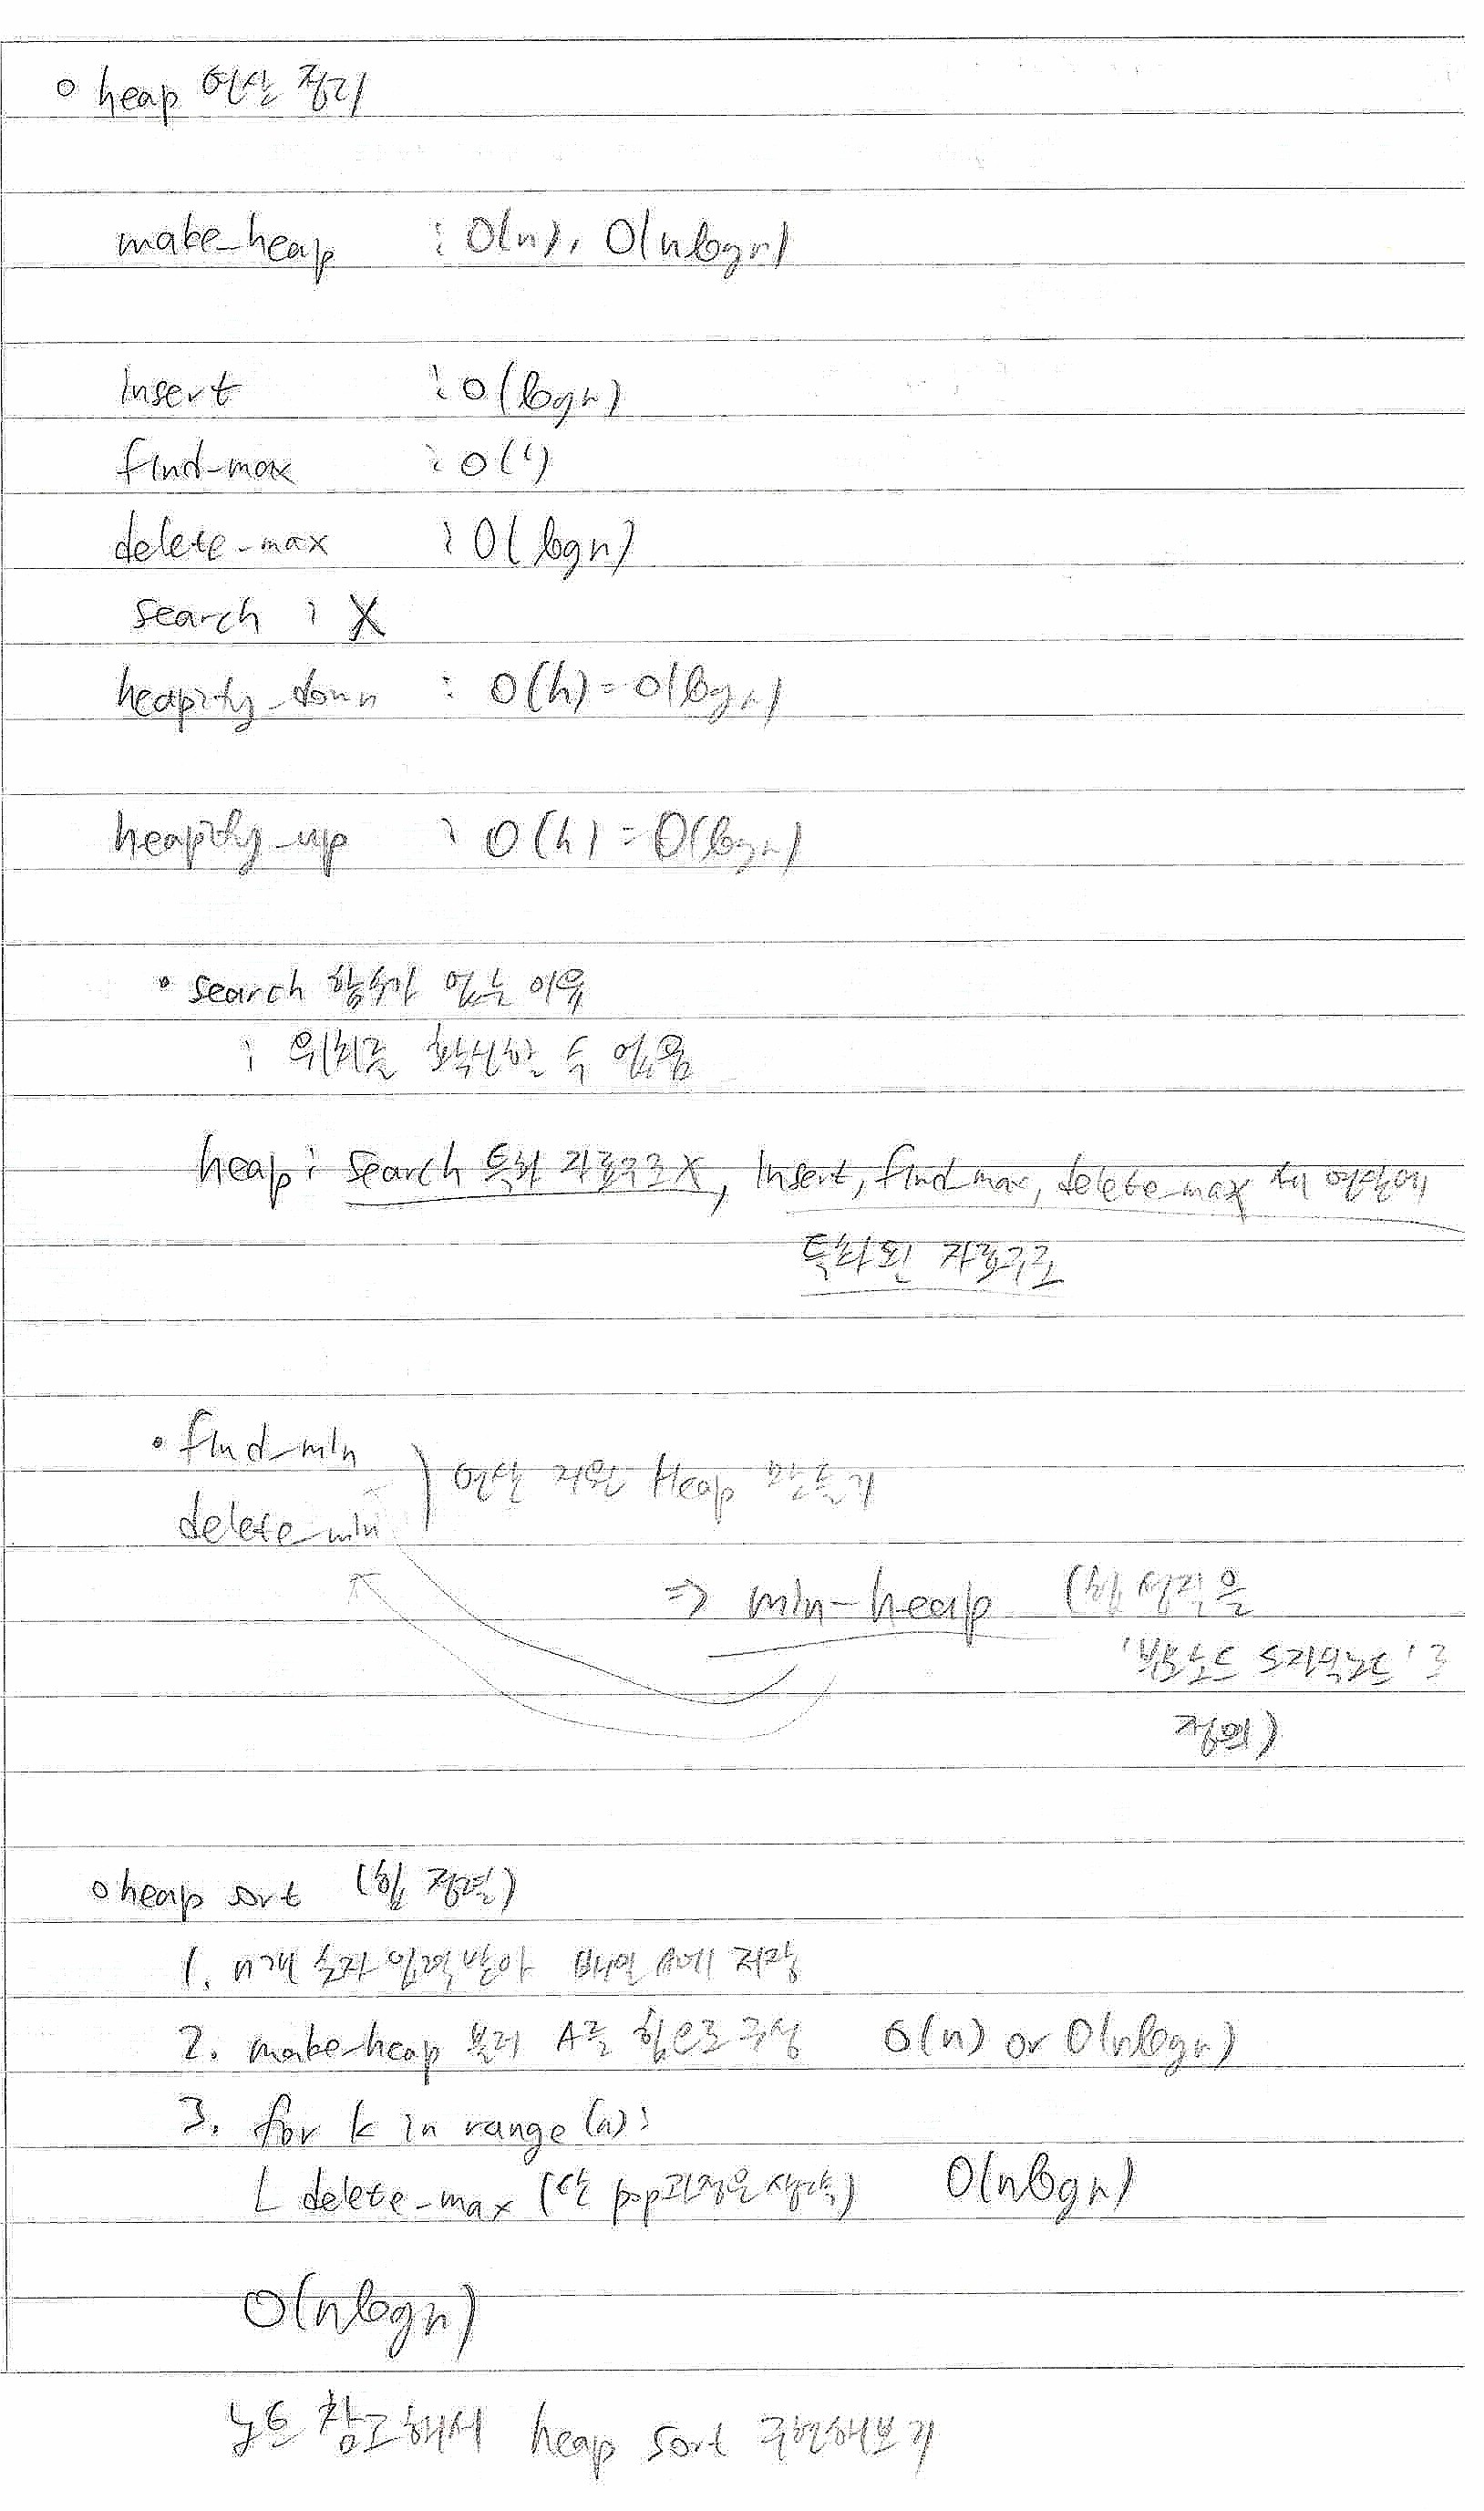 ○ heap 연산 정리
make_heap : O(n), O(nlogn)
insert : O(logn)
find-max : O(1)
delete-max : O(logn)
search : X
heapify_down : O(h) = O(logn)
heapify_up : O(h) = O(logn)
• search 함수가 없는 이유
: 위치를 확신할 수 없음
heap : search 특화 자료구조X, insert, find_max, delete_max 세 연산에
특화된 자료구조
• find_min
delete_min
연산 지원 Heap 만들기
⇒ min-heap (힙 성질을
'부모노드 ≤ 자식노드'로
정의)
○ heap sort (힙 정렬)
1. n개 숫자 입력받아 배열 A에 저장
2. make-heap 불러 A를 힙으로 구성 O(n) or O(nlogn)
3. for k in range(n):
└ delete-max (단 pop과정은 생략) O(nlogn)
O(nlogn)
노트 참고해서 heap sort 구현해보기